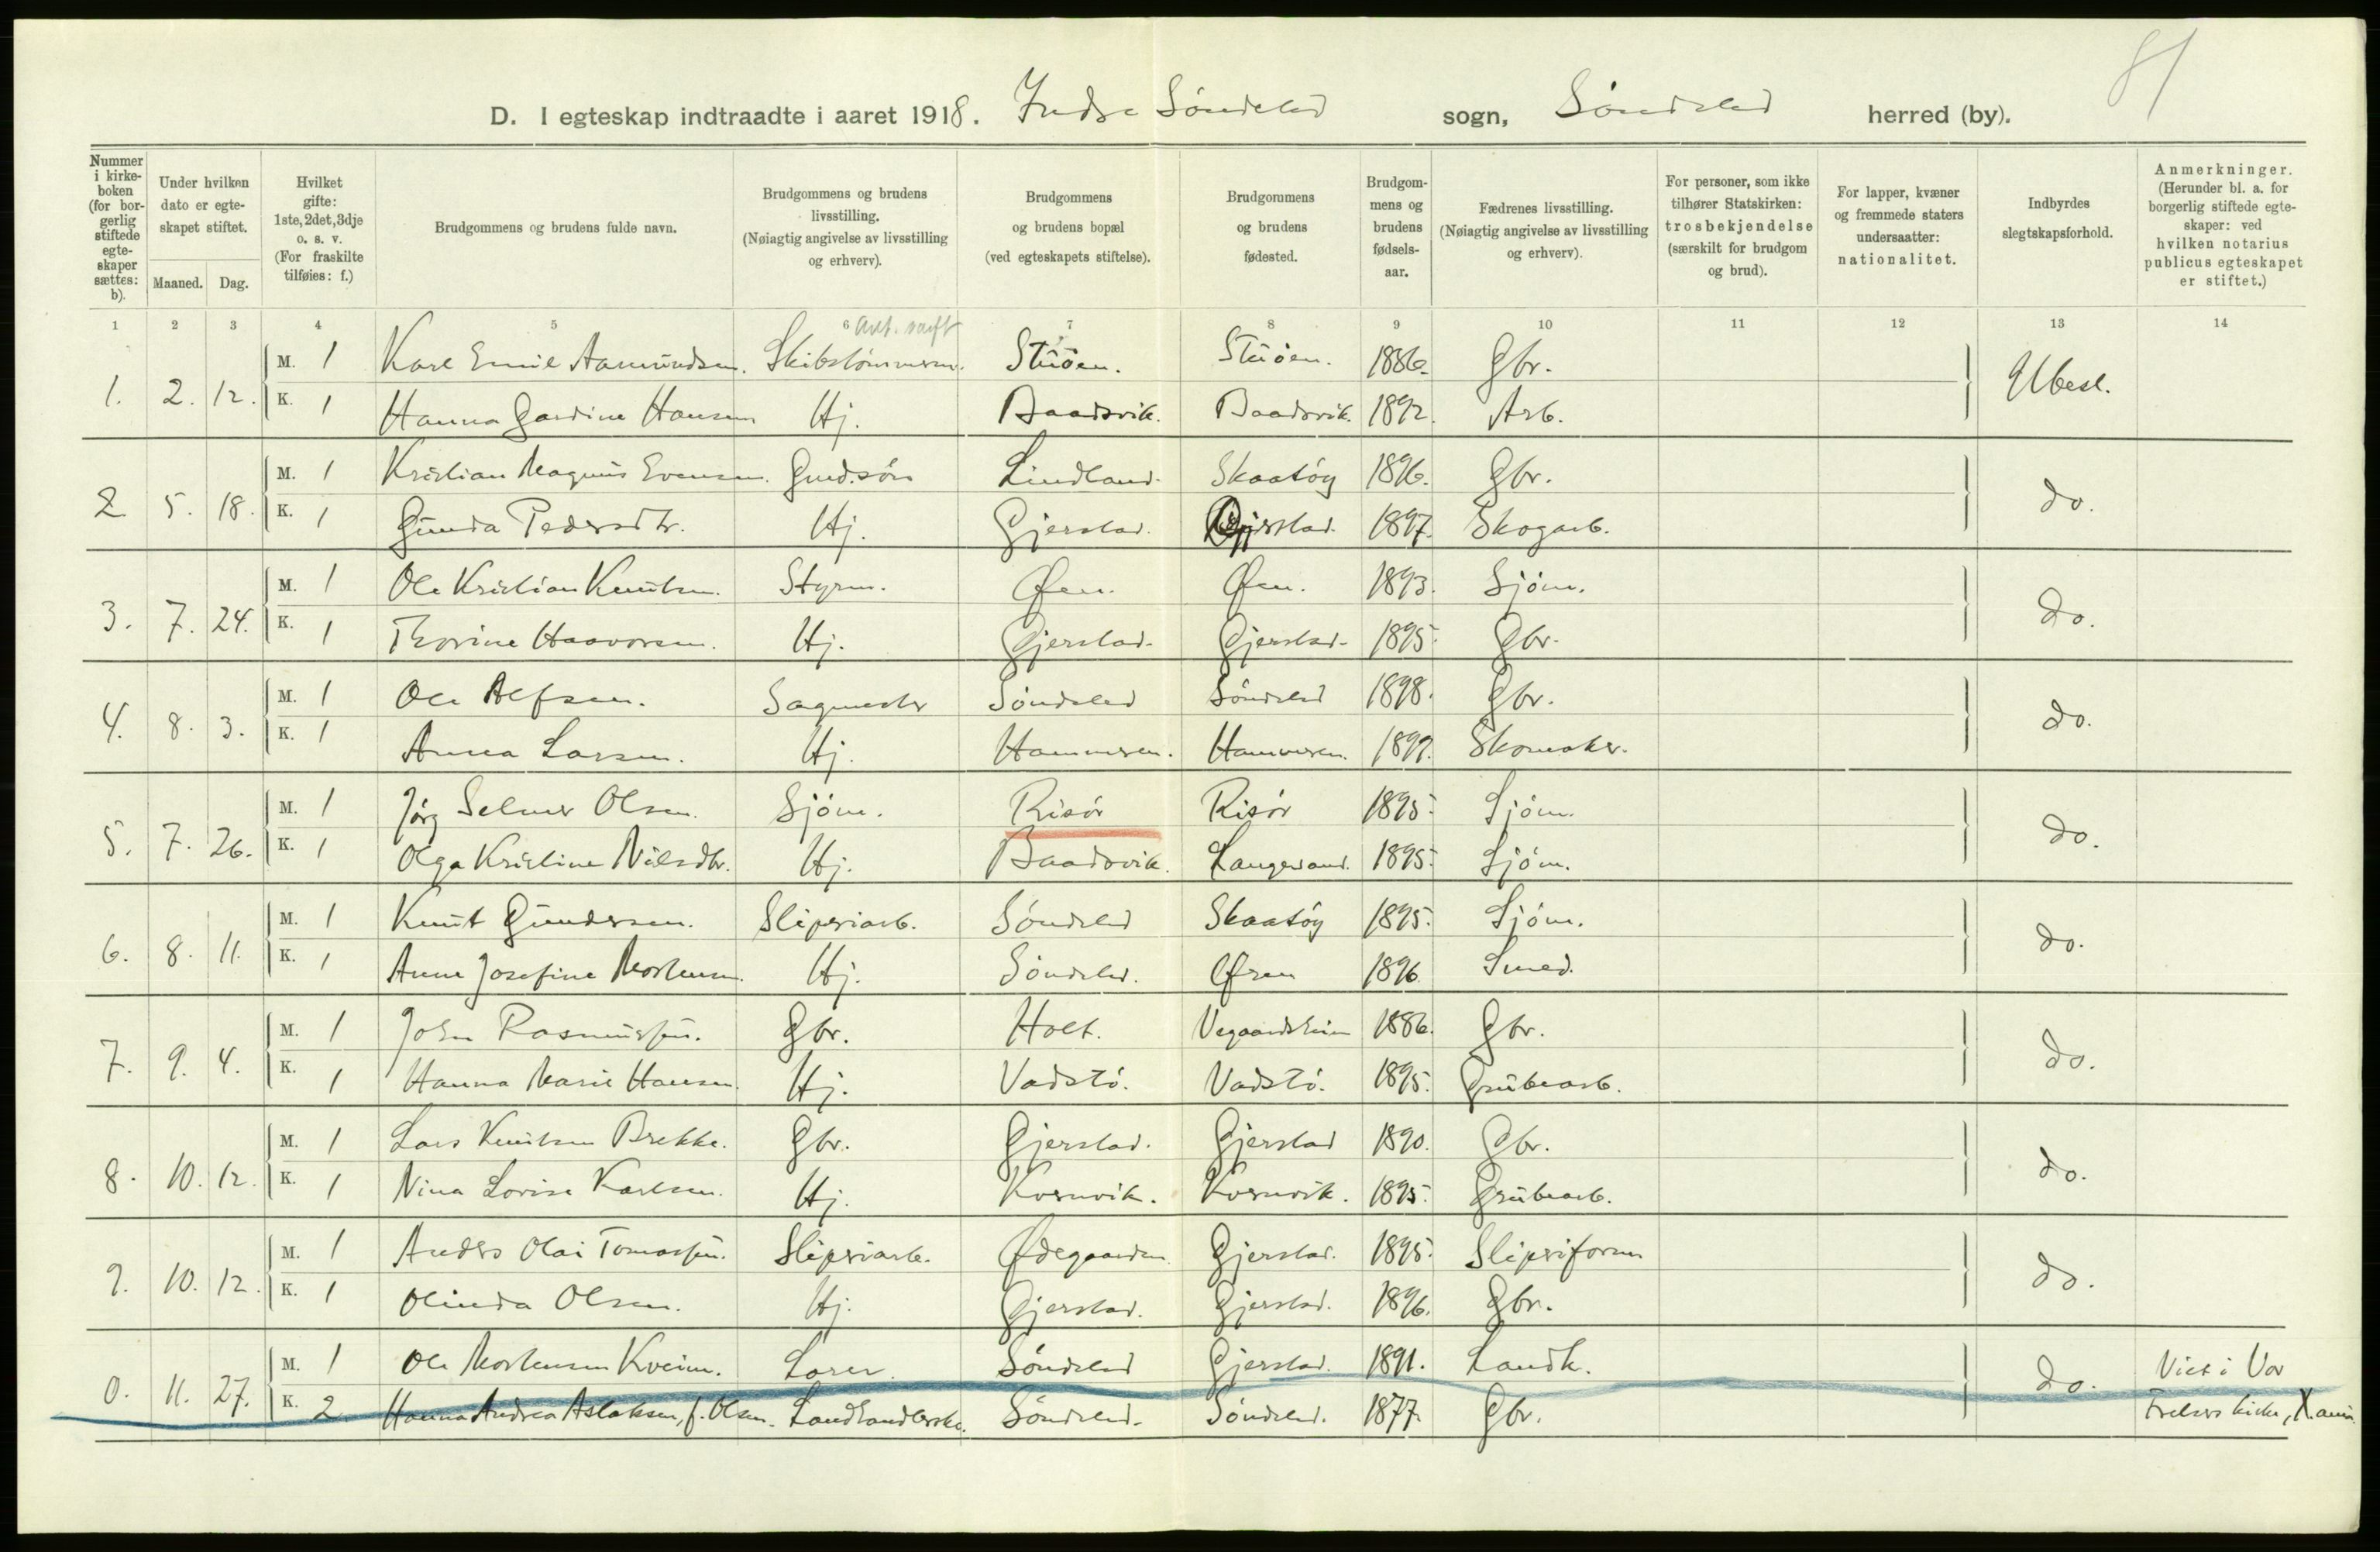 81
D. I egteskap indtraadte i aaret 1918. Indre Søndeled sogn, Søndeled herred (by).
Nummer i kirkeboken (for borgerlig stiftede egteskaper sættes: b).
Under hvilken dato er egteskapet stiftet.
Maaned. Dag.
Hvilket gifte: 1ste, 2det, 3dje o. s. v. (For fraskilte tilføies: f.)
Brudgommens og brudens fulde navn.
Brudgommens og brudens livsstilling. (Nøiagtig angivelse av livsstilling og erhverv).
Brudgommens og brudens bopæl (ved egteskapets stiftelse).
Brudgommens og brudens fødested.
Brudgommens og brudens fødselsaar.
Fædrenes livsstilling. (Nøiagtig angivelse av livsstilling og erhverv).
For personer, som ikke tilhører Statskirken: trosbekjendelse (særskilt for brudgom og brud).
For lapper, kvæner og fremmede staters undersaatter: nationalitet.
Indbyrdes slegtskapsforhold.
Anmerkninger. (Herunder bl. a. for borgerlig stiftede egteskaper: ved hvilken notarius publicus egteskapet er stiftet.)
1 2 3 4 5 6 7 8 9 10 11 12 13 14
1. 2. 12. M. 1 Karl Emil Aamundsen. Skibstømmerm. Stüöen. Stüöen. 1886. Gbr. Ubesl.
K. 1 Hanna Gardine Hansen Hj. Baadsvik. Baadsvik. 1892. Arb.
2. 5. 18. M. 1 Kristian Magnus Evensen. Gmd.søn Lindland. Skaatöy 1896. Gbr. do.
K. 1 Gunda Pedersdtr. Hj. Gjerstad. Gjerstad. 1897. Skogarb.
3. 7. 24. M. 1 Ole Kristian Knutsen. Styrm. Øen. Øen. 1893. Sjöm. do.
K. 1 Thorine Haavorsen. Hj. Gjerstad. Gjerstad. 1895. Gbr.
4. 8. 3. M. 1 Ole Alfsen. Sagmester Söndeled Söndeled 1898. Gbr. do.
K. 1 Anna Larsen. Hj. Hammeren. Hammeren. 1899. Skomaker.
5. 7. 26. M. 1 Jörg Selmer Olsen. Sjöm. Risör Risör 1895. Sjöm. do.
K. 1 Olga Kristine Nilsdtr. Hj. Baadsvik. Langesund. 1895. Sjöm.
6. 8. 11. M. 1 Knut Gundersen. Sliperiarb. Söndeled Skaatöy 1895. Sjöm. do.
K. 1 Anne Josefine Mortensen. Hj. Söndeled. 1896 Smed.
7. 9. 4. M. 1 John Rasmussen. Gbr. Holt. Vegaardsheim 1886. Gbr. do.
K. 1 Hanna Marie Hansen. Hj. Vadstö. Vadstö. 1895. Grubearb.
8. 10. 12. M. 1 Lars Knutsen Brekke. Gbr. Gjerstad. Gjerstad 1890. Gbr. do.
K. 1 Nina Lovise Karlsen. Hj. Kvernvik. Kvernvik. 1895. Grubearb.
9. 10. 12. M. 1 Anders Olai Tomassen. Sliperiarb. Ødegaarden Gjerstad. 1895. Sliperiform do.
K. 1 Olinda Olsen. Hj. Gjerstad. Gjerstad. 1896. Gbr.
0. 11. 27. M. 1 Ole Mortensen Kveim. Lærer. Söndeled Gjerstad. 1891. Landh. do. Viet i Vor
K. 2 Hanna Andrea Aslaksen, f. Olsen. Landhandlerske. Söndeled. Söndeled. 1877. Gbr. Frelsers kirke, X.ania.